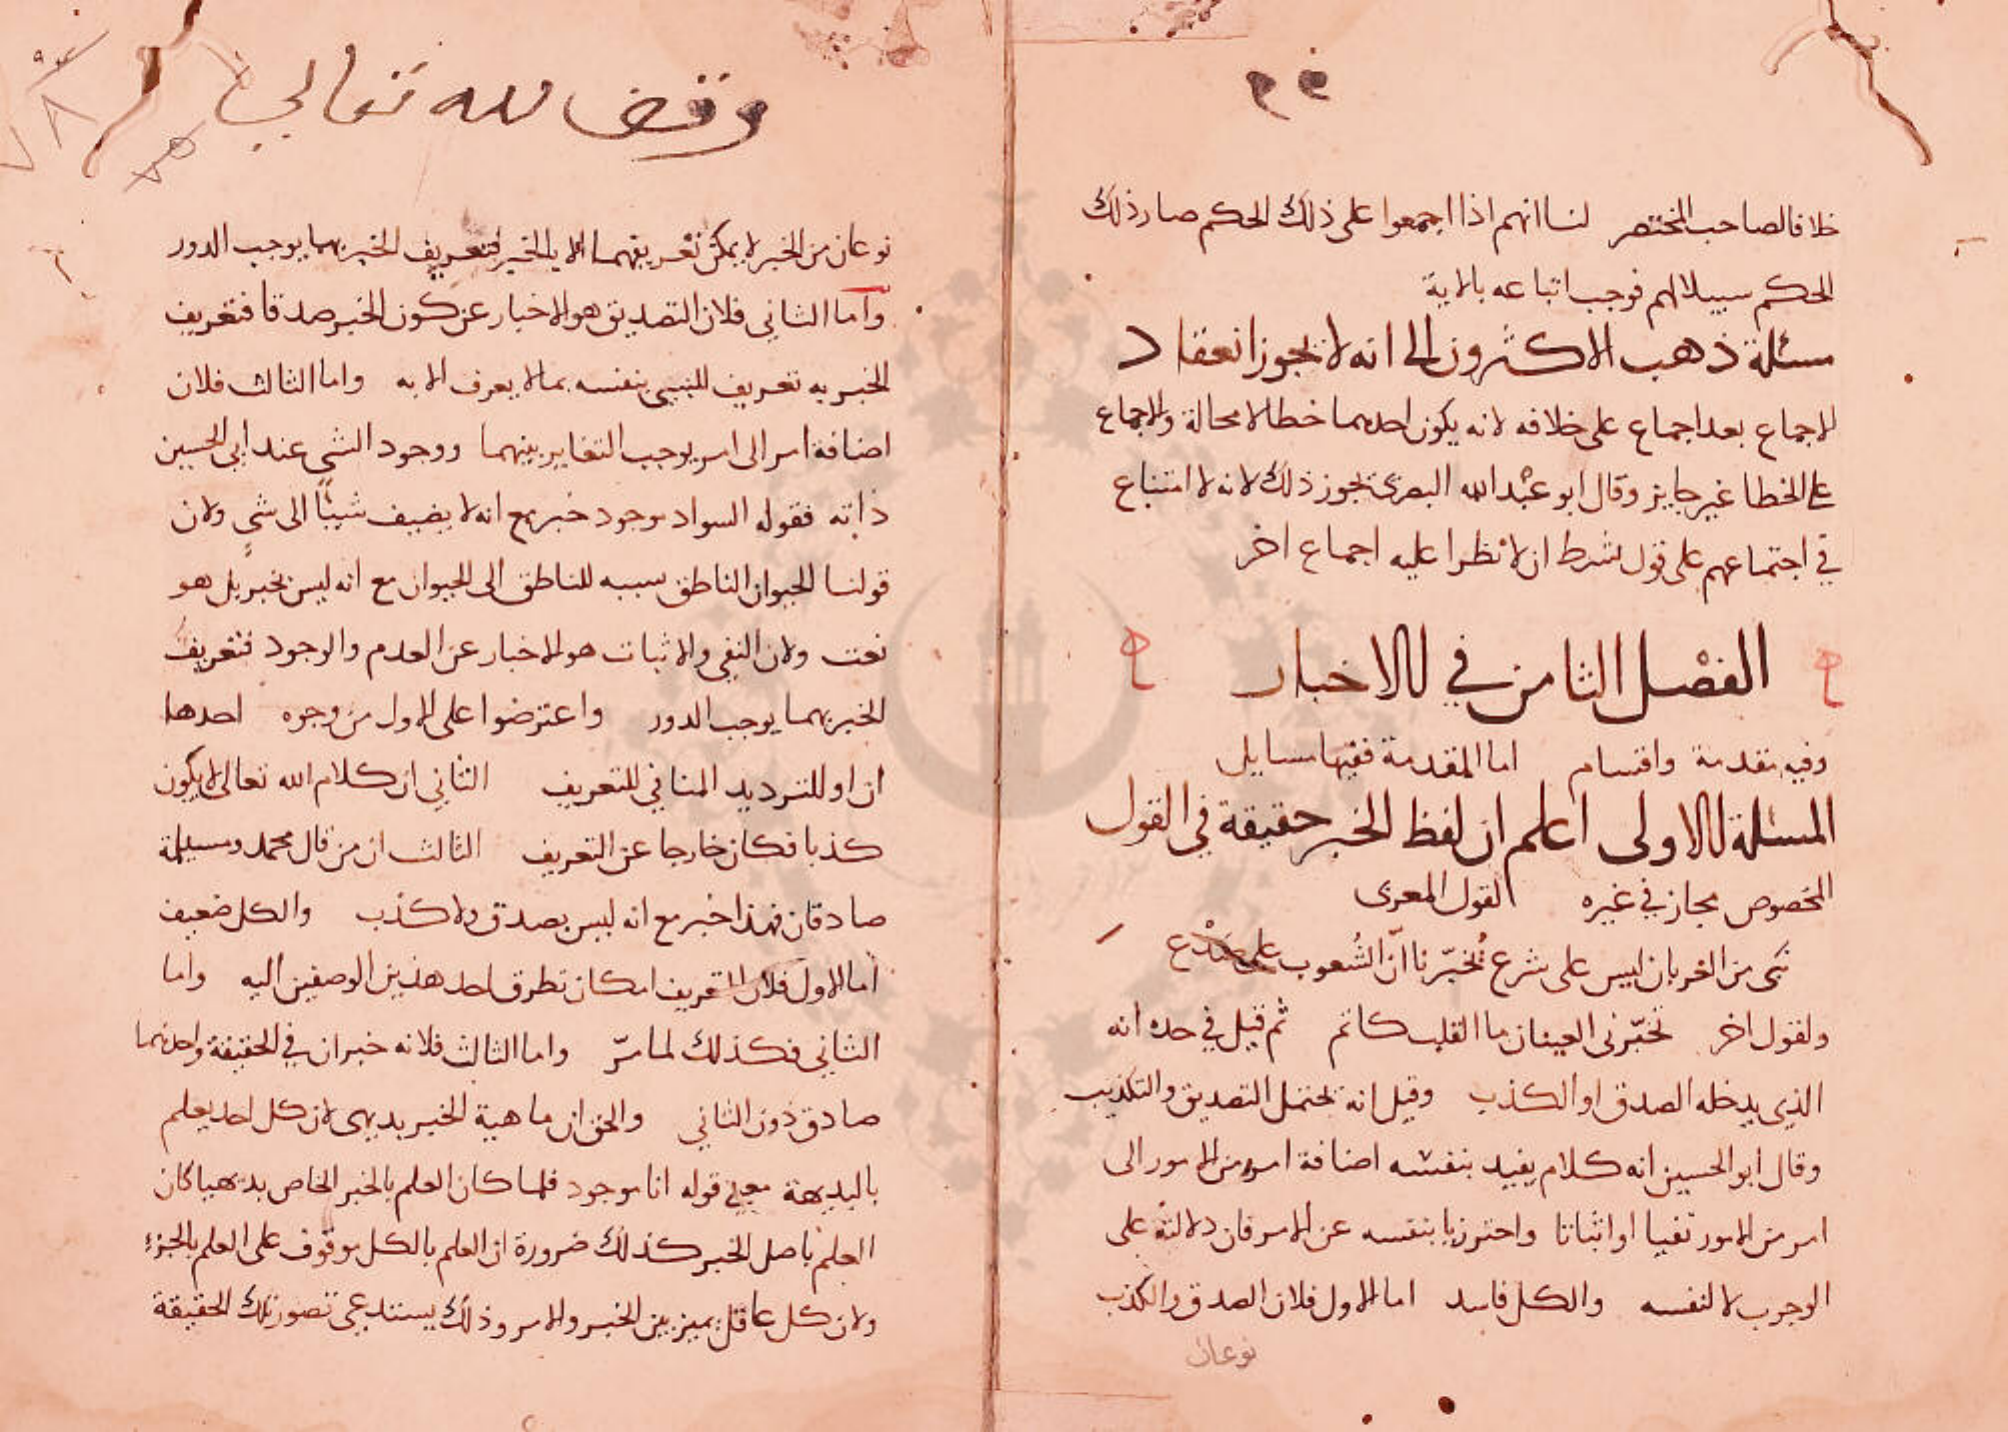 خلافا لصاحب المختصر لنا انهم اذا اجمعوا على ذلك الحكم صار ذلك
الحكم سبيلا لهم فوجب اتباعه بالاية
مسئلة ذهب الاكثرون الى انه لا يجوز انعقاد
الاجماع بعد اجماع على خلافه لانه يكون احدهما خطا لا محالة والاجماع
على الخطا غير جايز وقال ابو عبد الله البصرى يجوز ذلك لانه لا امتناع
في اجتماعهم على قول بشرط ان لا يطرا عليه اجماع اخر
الفصل الثامن في الاخبار
وفيه مقدمة واقسام اما المقدمة ففيها مسايل
المسئلة الاولى اعلم ان لفظ الخبر حقيقة في القول
المخصوص مجاز في غيره لقول المعرى
نبى من الغربان ليس على شرع تُخَبّرنا انّ الشُعوب على صَدْع
ولقول اخر تخبّرنى العينان ما القلب كاتم ثم قيل في حده انه
الذي يدخله الصدق او الكذب وقيل انه يحتمل التصديق والتكذيب
وقال ابو الحسين انه كلام يفيد بنفسه اضافة امر من الامور الى
امر من الامور نفيا او اثباتا واحترز با بنفسه عن الامر فان دلالته على
الوجوب لا لنفسه والكل فاسد اما الاول فلان الصدق والكذب
نوعان
وقف لله تعالى
نوعان من الخبر لا يمكن تعريفهما الا بالخبر فتعريف الخبر بهما يوجب الدور
واما الثاني فلان التصديق هو الاخبار عن كون الخبر صدقا فتعريف
الخبر به تعريف للشي بنفسه بما لا يعرف الا به واما الثالث فلان
اضافة امر الى امر يوجب التغاير بينهما ووجود الشي عند ابى الحسين
ذاته فقوله السواد موجود خبر مع انه لا يضيف شيئا الى شي ولان
قولنا الحيوان الناطق نسبة للناطق الى الحيوان مع انه ليس بخبر بل هو
نعت ولان النفي والاثبات هو الاخبار عن العدم والوجود فتعريف
الخبر بهما يوجب الدور واعترضوا على الاول من وجوه احدها
ان او للترديد المنافي للتعريف الثاني ان كلام الله تعالى لا يكون
كذبا فكان خارجا عن التعريف الثالث ان من قال محمد ومسيلمة
صادقان فهذا خبر مع انه ليس بصدق ولا كذب والكل ضعيف
اما الاول فلان التعريف امكان تطرق احد هذين الوصفين اليه واما
الثاني فكذلك لما مرّ واما الثالث فلانه خبران في الحقيقة واحدهما
صادق دون الثاني والحق ان ماهية الخبر بديهى لان كل احد يعلم
بالبديهة معنى قوله انا موجود فلما كان العلم بالخبر الخاص بديهيا كان
العلم باصل الخبر كذلك ضرورة ان العلم بالكل موقوف على العلم بالجزء
ولان كل عاقل يميز بين الخبر والامر وذلك يستدعي تصور تلك الحقيقة